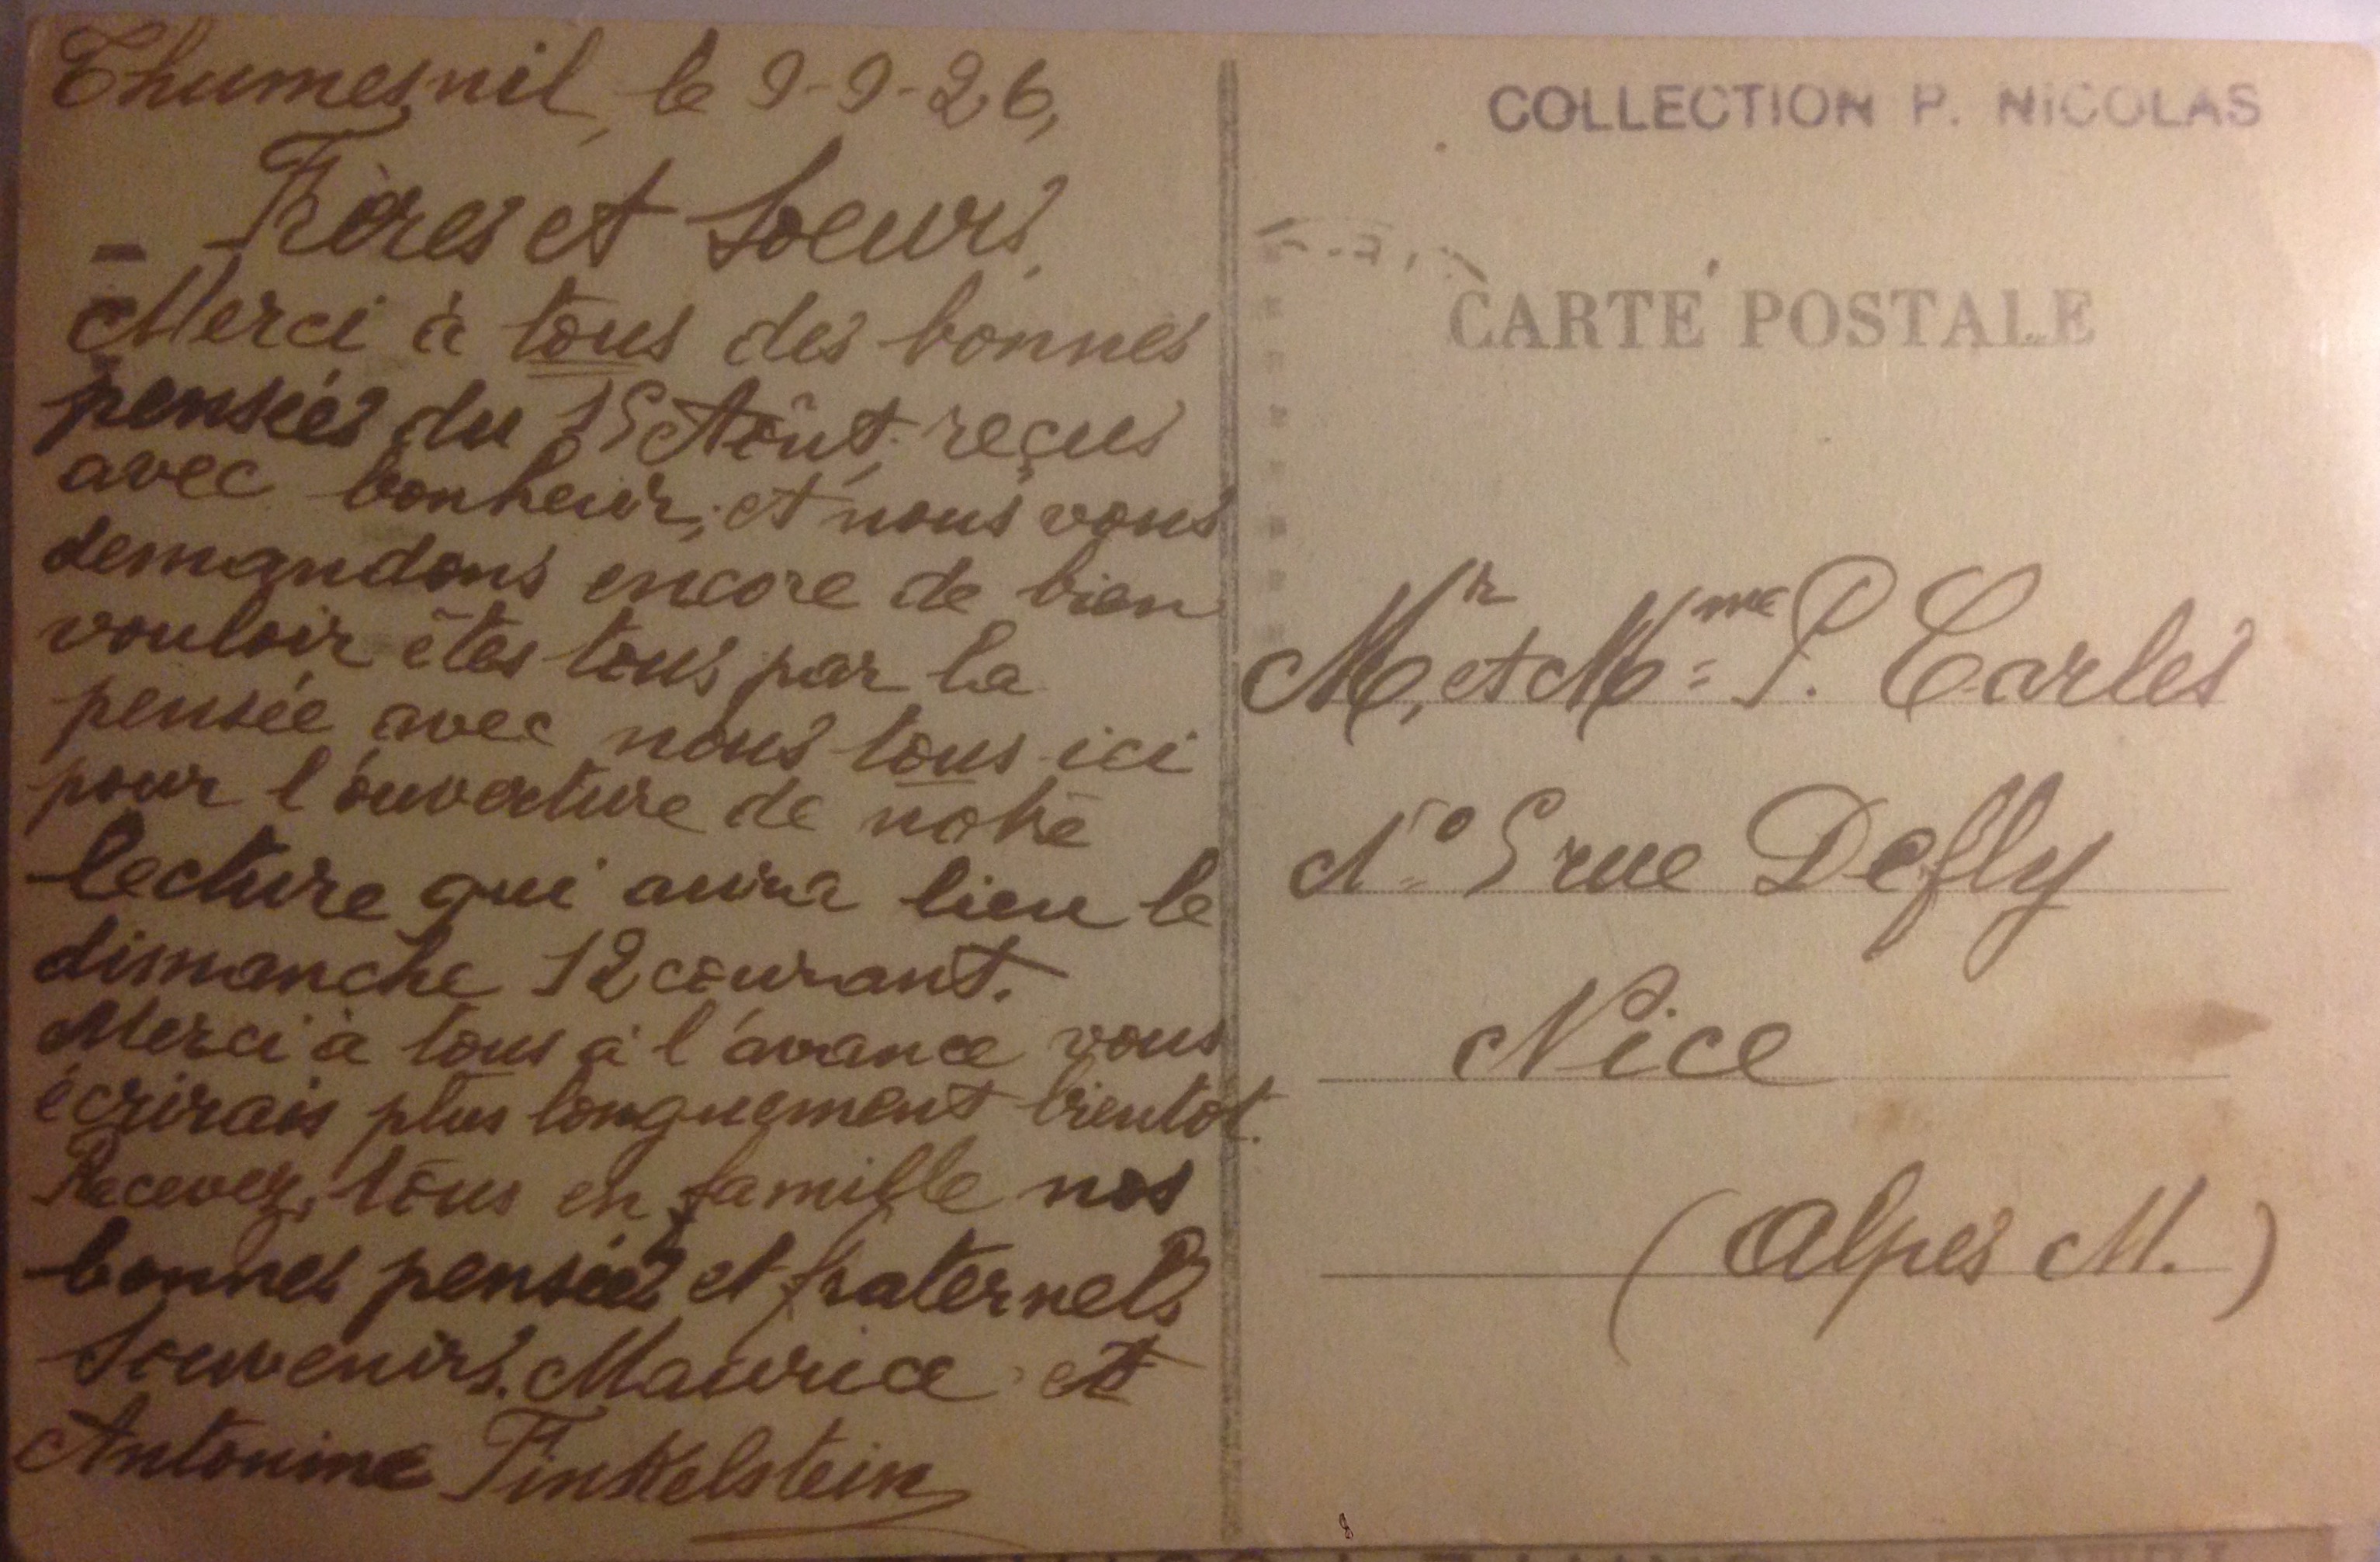 Thumesnil, le 9-9-26,
Frères et Soeurs,
Merci à tous des bonnes
pensées du 15 Aôut, reçus
avec bonheur, et nous vous
demandons encore de bien
vouloir êtes tous par la
pensée avec nous tous ici
pour l'ouverture de notre
lecture qui aura lieu le
dimanche 12 courant.
Merci à tous à l'avance vous
écrirais plus longuement bientot.
Recevez, tous en famille nos
bonnes pensées et fraternels
Souvenirs. Maurice et
Antonine Finkelstein
COLLECTION P. NICOLAS
CARTE POSTALE
Mr, et Mme P. Carles
No 5 rue Defly
Nice
(Alpes M.)